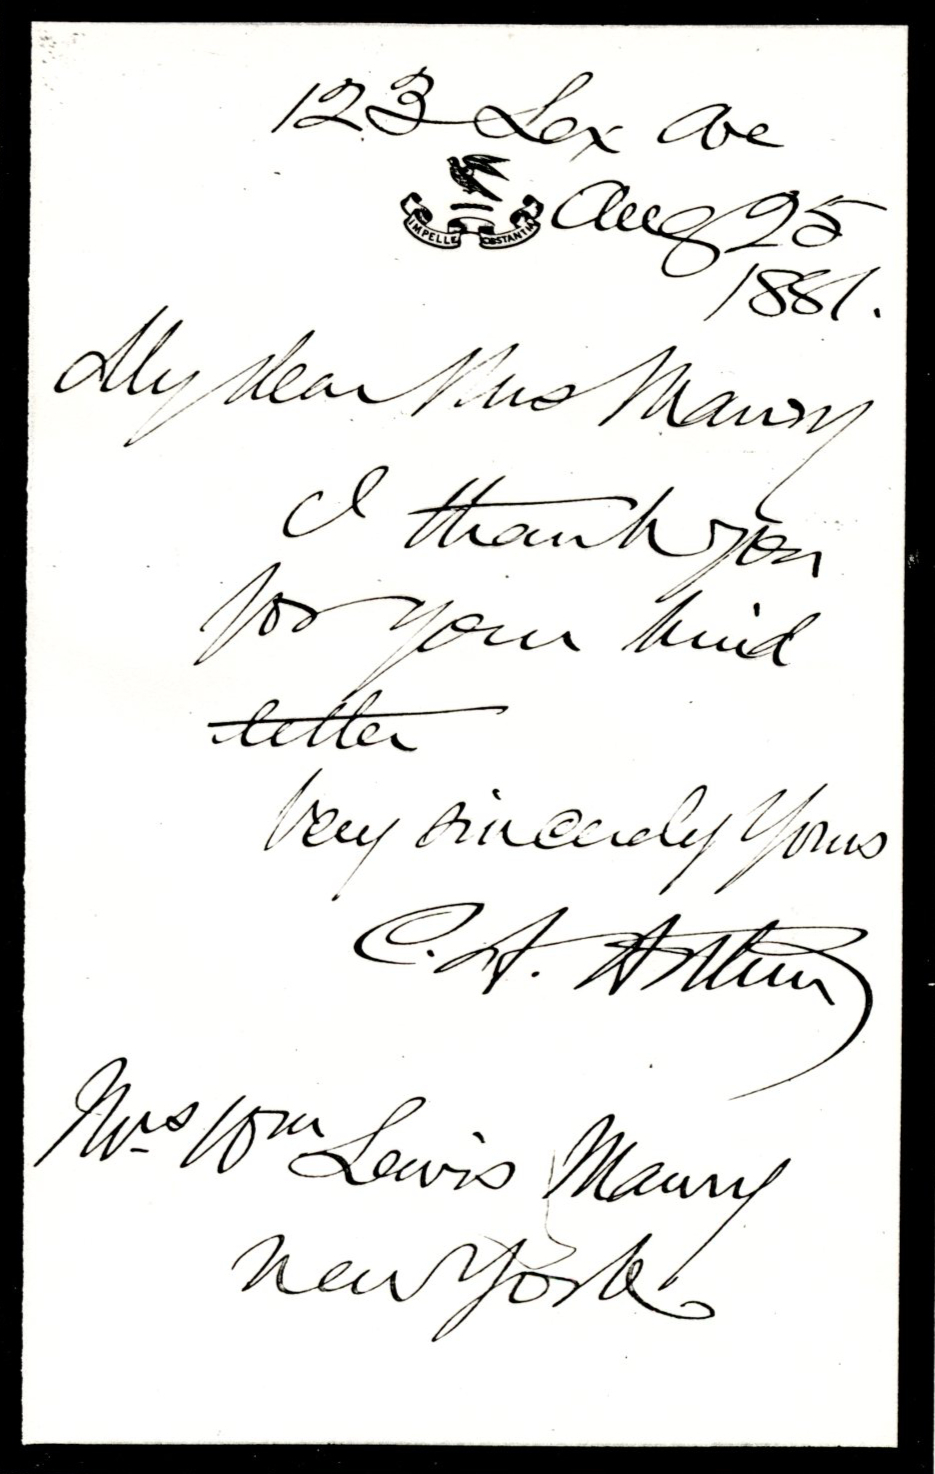 123 Lex Ave
IMPELLE OBSTANTIA
Aug 25
1881.
My dear Mrs Maury
I thank you
for your kind
letter
Very sincerely Yours
C. A. Arthur
Mrs Wm Lewis Maury
New York